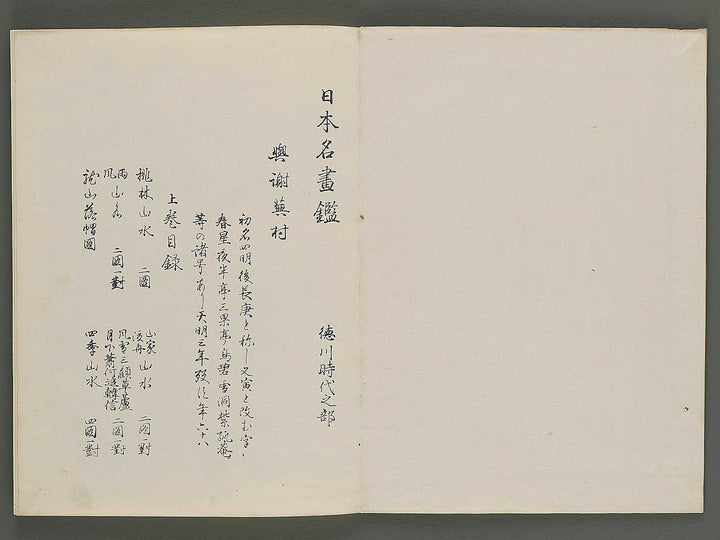 日本名畫鑑　徳川時代之部
與謝蕪村
初名四明後長庚と称し又寅と改む字ハ
春星夜半亭三果亭鳥碧雪洞紫狐菴
等の諸号あり天明三年歿行年六十八
上巻目録
桃林山水　二圖
山家
渓舟　山水　二圖一對
雨
風　山水　二圖一對
風雪三顧草廬
月下蕭何追韓信　二圖一對
龍山落帽圖
四季山水　四圖一對